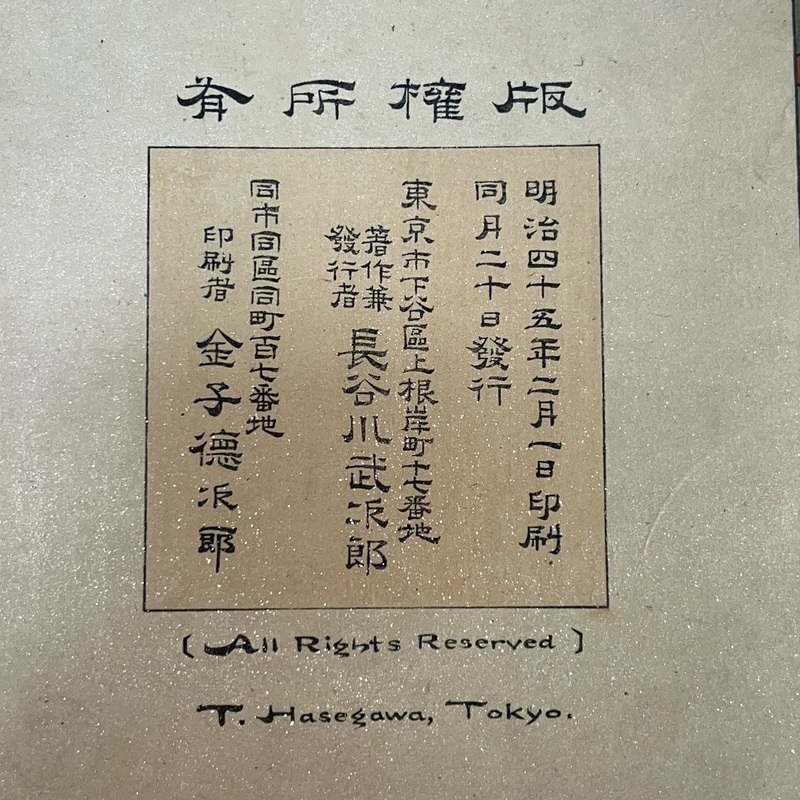 版權所有
明治四十五年二月一日印刷
同月二十日發行
東京市下谷區上根岸町十七番地
著作兼
發行者
長谷川武次郎
同市同區同町百七番地
印刷者 金子德次郎
( All Rights Reserved )
T. Hasegawa, Tokyo.